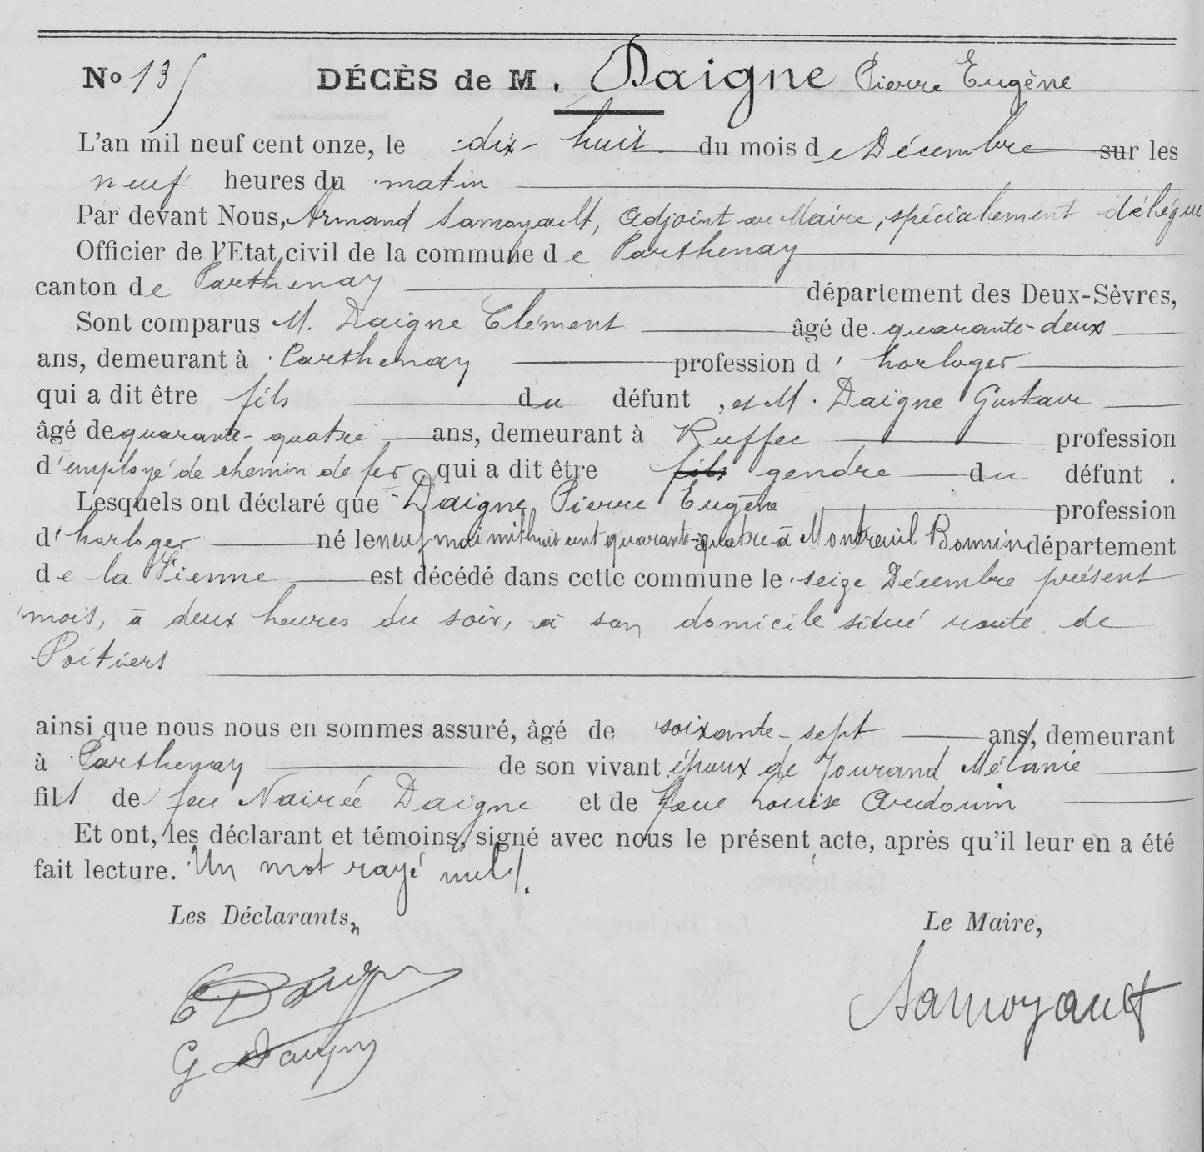 No 135 DÉCÈS de M. Daigne Pierre Eugène
L'an mil neuf cent onze, le dix-huit du mois de Décembre sur les
neuf heures du matin
Par devant Nous, Armand Samoyault, Adjoint au Maire, spécialement délégué
Officier de l'Etat civil de la commune de Parthenay
canton de Parthenay département des Deux-Sèvres,
Sont comparus M. Daigne Clément âgé de quarante-deux
ans, demeurant à Parthenay profession d'horloger
qui a dit être fils du défunt, et M. Daigne Gustave
âgé de quarante-quatre ans, demeurant à Ruffec profession
d'employé de chemin de fer qui a dit être fils gendre du défunt.
Lesquels ont déclaré que Daigne Pierre Eugène profession
d'horloger né le neuf mai mil huit cent quarante-quatre à Montreuil Bonnin département
de la Vienne est décédé dans cette commune le seize Décembre présent
mois, à deux heures du soir, à son domicile situé route de
Poitiers
ainsi que nous nous en sommes assuré, âgé de soixante-sept ans, demeurant
à Parthenay de son vivant époux de Jourand Mélanie
fils de feu Daigne et de Louise Audouin
Et ont, les déclarant et témoins, signé avec nous le présent acte, après qu'il leur en a été
fait lecture. Un mot rayé nul.
Les Déclarants, Le Maire,
C Daigne Samoyault
G Daigne